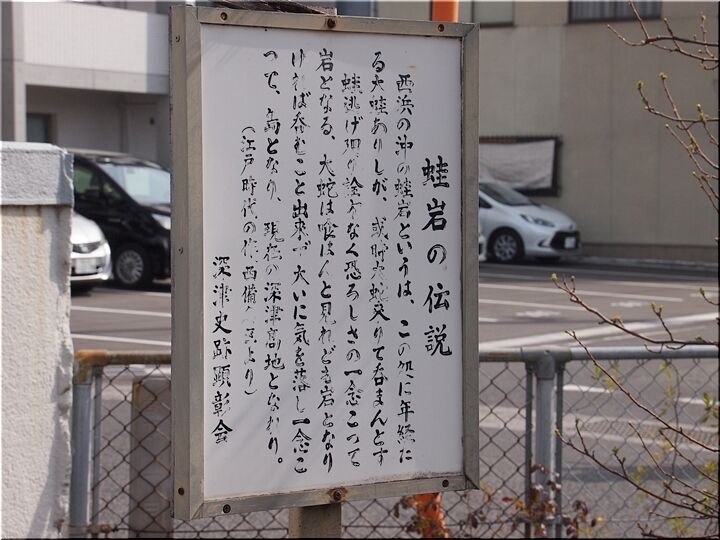 蛙岩の伝説
西浜の沖の蛙岩というは、この処に年経た
る大蛙ありしが、或時大蛇来りて呑まんとす
蛙逃げ廻り詮方なく恐ろしさの一念こって
岩となる、大蛇は喰はんと見れども岩となり
ければ呑むこと出来ず大いに気を落し一念こ
って、島となり、現在の深津高地となれり。
(江戸時代の作西備より)
深津史跡顕彰会